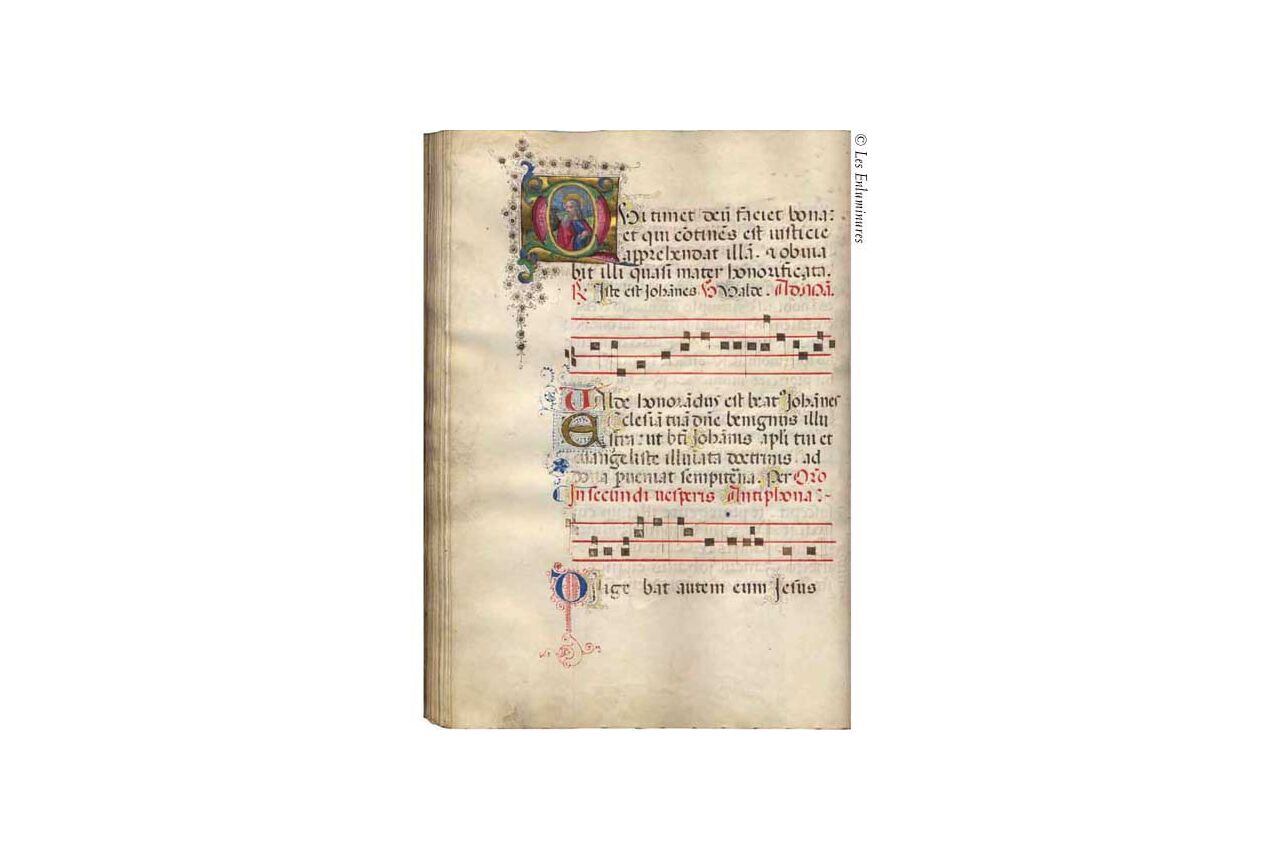 Qui timet deū faciet bona:
et qui cōtinēs est iusticie
apprehendat illā. & obuia
bit illi quasi mater honorificata.
R Iste est Johānes V Valde. Ad Mā.
Valde honorādus est beat⁹ Johānes
Ecclesiā tuā dn̄e benignus illu
stra: ut bt̄i Johānis apl̄i tui et
euāgeliste illuīata doctrinis. ad
dona p̄ueniat sempit̄na. Per Or̄o
In secundis uesperis Antiphona:~
Dilige bat autem eum Jesus
© Les Enluminures